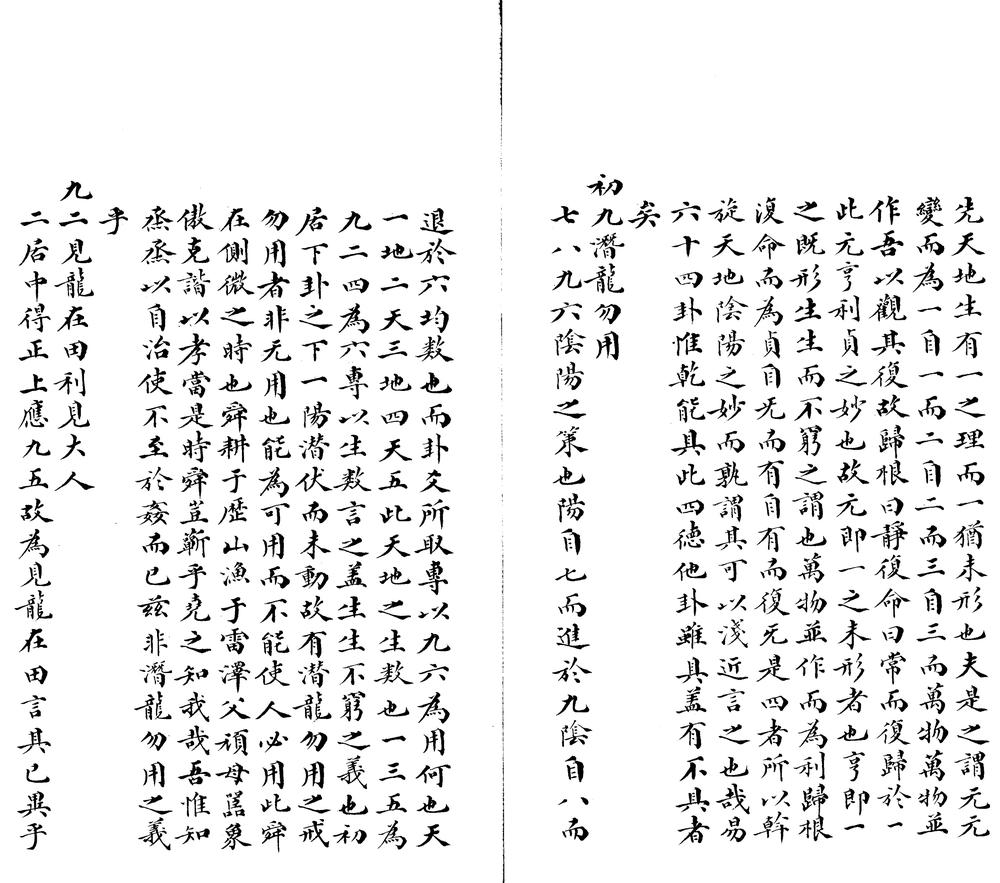 先天地生有一之理而一猶未形也夫是之謂元元
變而為一自一而二自二而三自三而萬物萬物並
作吾以觀其復故歸根曰靜復命曰常而復歸於一
此元亨利貞之妙也故元即一之未形者也亨即一
之既形生生而不窮之謂也萬物並作而為利歸根
復命而為貞自旡而有自有而復旡是四者所以斡
旋天地陰陽之妙而孰謂其可以淺近言之也哉易
六十四卦惟乾能具此四德他卦雖具盖有不具者
矣
初九潛龍勿用
七八九六陰陽之策也陽自七而進於九陰自八而
退於六均数也而卦爻所取專以九六為用何也天
一地二天三地四天五此天地之生数也一三五為
九二四為六專以生数言之盖生生不窮之義也初
居下卦之下一陽潜伏而未動故有潜龍勿用之戒
勿用者非无用也能為可用而不能使人必用此舜
在側微之時也舜耕于歷山漁于雷澤父頑母嚚象
傲克諧以孝當是時舜豈蘄乎堯之知我哉吾惟知
烝烝以自治使不至於姦而已兹非潛龍勿用之義
乎
九二見龍在田利見大人
二居中得正上應九五故為見龍在田言其已異乎